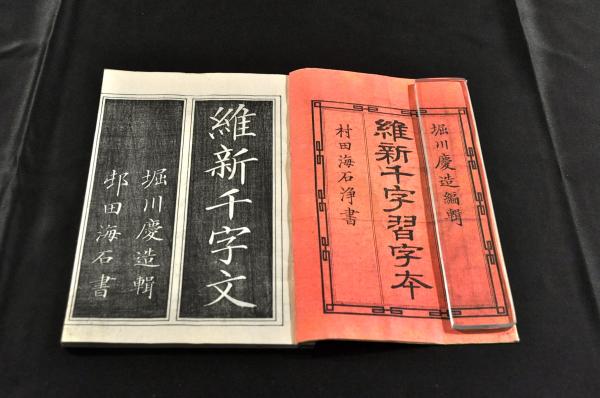 堀川慶造編輯
維新千字習字本
村田海石浄書
維新千字文
堀川慶造輯
邨田海石書